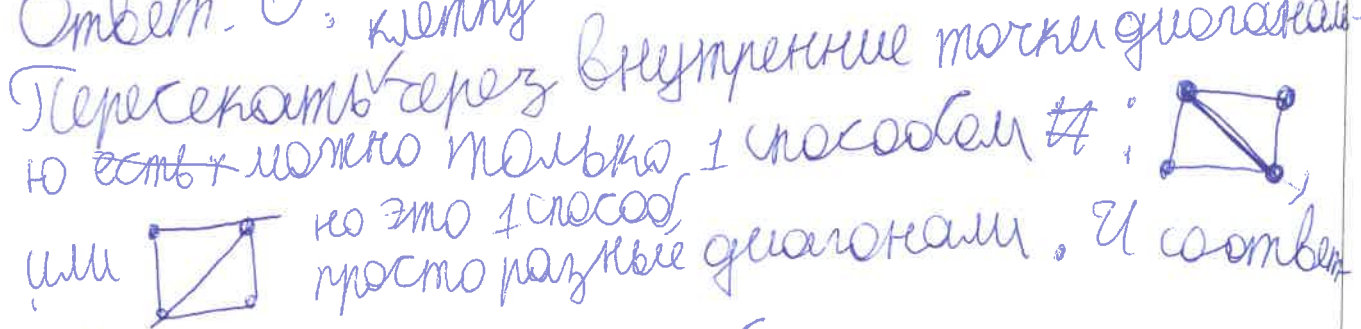 Ответ. 0 : клетку
Пересекать через внутренние точки диагональ-
ю есть т можно только 1 способом И :
или но это 1 способ,
просто разные диагонали. И соответ-